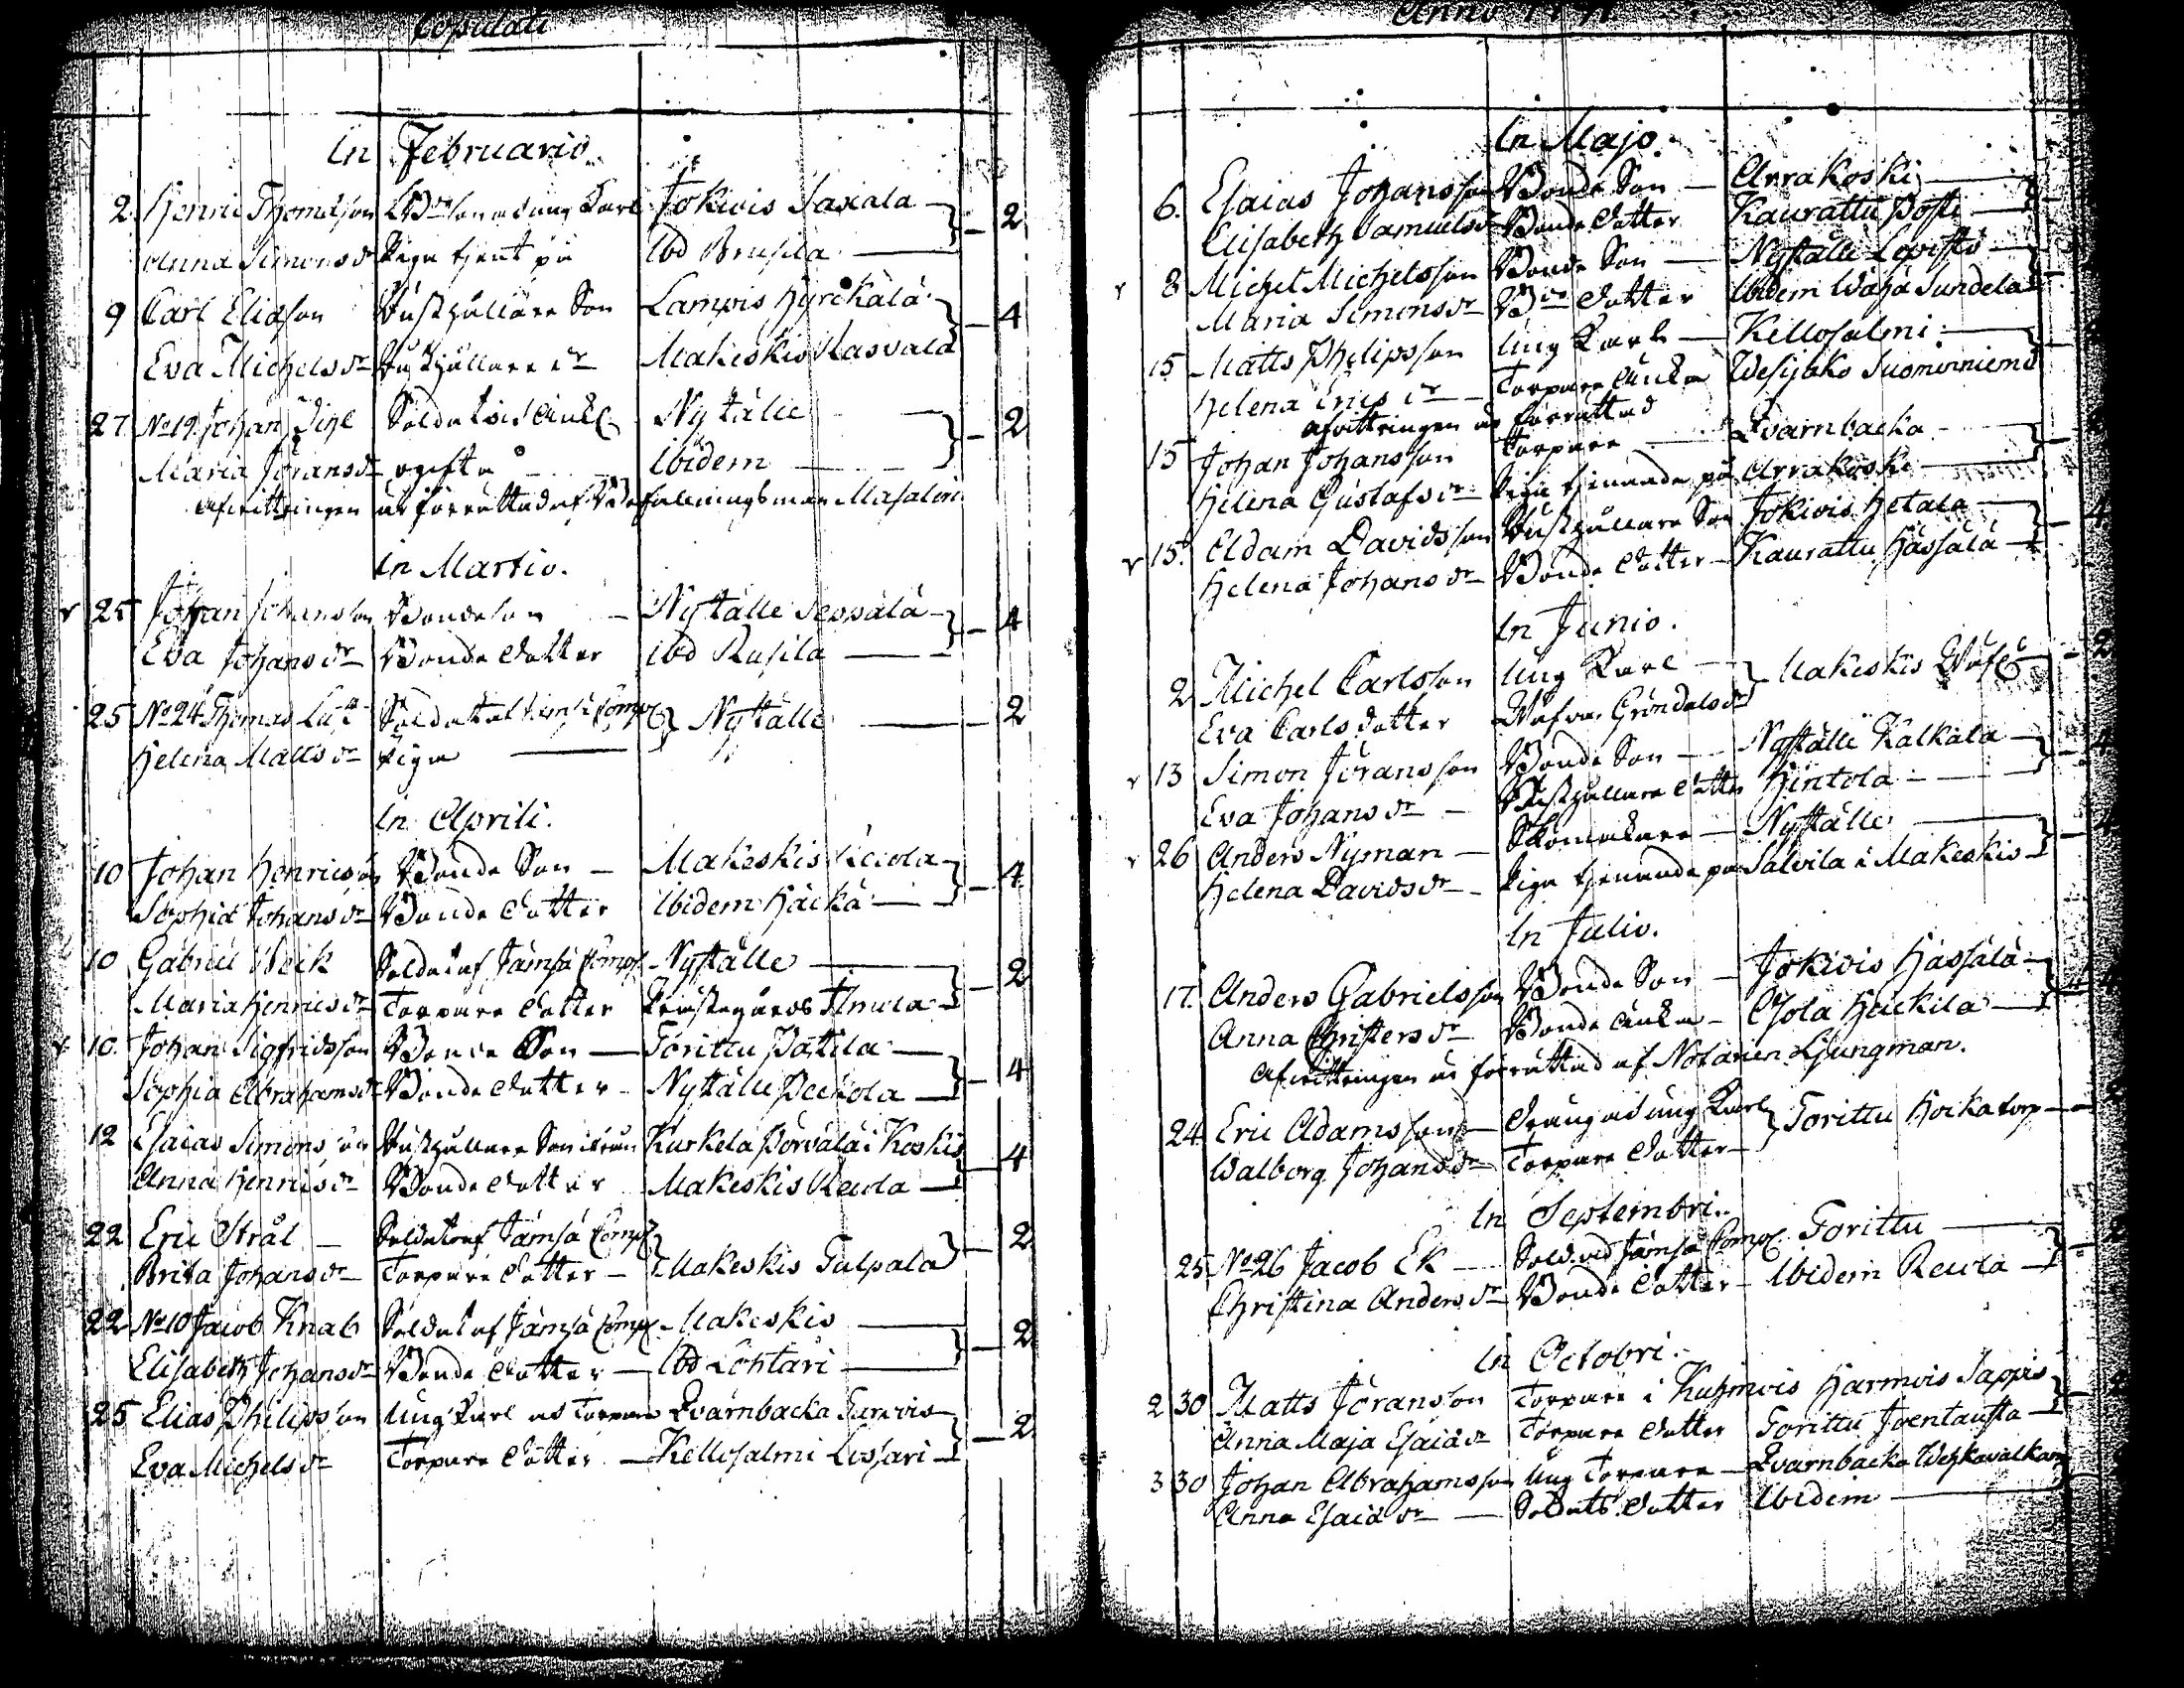 Copulati
In Februario.
2 Henric Thomasson Jokivis Saxala 2
Anna Simons dr Piga tjent på Ibd Brusila
9 Carl Eliason Rusthållare Son Lamvis Hyrckälä 4
Eva Michels dr Rusthållare dr Makeskis Rasvala
27 No 19 Johan Soldat Nyställe 2
Maria Jörans dr ogifta Ibidem
Afvittringen är förrättad af
In Martio.
25 Johan Johansson Bondeson Nyställe Seppälä 4
Eva Johans dr Bonde Dotter Ibd Rusila
25 No 24 Thomas Soldat Nyställe 2
Helena Matts dr Piga
In Aprili.
10 Johan Henricsson Bonde Son Makeskis 4
Sophia Johans dr Bonde Dotter Ibidem Häckä
10 Gabriel Weik Soldat af Jämsä Comp. Nyställe 2
Maria Henrics dr Torpare Dotter
10. Johan Sigfridsson Bonde Son Torittu Pätilä 4
Sophia Abrahams dr Bonde Dotter Nyställe Peckola
12 Esaias Simonsson Rusthållare Son ifrån Kurkela Porvala i Koskis 4
Anna Henrics dr Bonde Dotter Makeskis Reivla
22 Eric Strål Soldat af Jämsä Comp. 2
Brita Johans dr Torpare Dotter Makeskis Talpala
22 No 10 Jacob Knab Soldat af Jämsä Comp. Makeskis 2
Elisabeth Johans dr Bonde Dotter Ibd Lontari
25 Elias Philipsson Ung Karl Torpare Qvarnbacka 2
Eva Michels dr Torpare Dotter Kellosalmi Lessari
Anno
In Majo.
6. Esaias Johansson Bonde Son Arrakoski
Elisabeth Samuels dr Bonde Dotter Kaurattu Posti
8 Michel Michelsson Bonde Son Nyställe
Maria Simons dr Bde Dotter Ibidem Wähä Sundela
15 Matts Philipsson Ung Karl Kellosalmi
Helena Erics dr Torpare Änka Wesijako Suominniemi
Afvittringen är förrättad
15 Johan Johansson Torpare Qvarnbacka
Helena Gustafs dr Piga tjenande på Arrakoski
15. Adam Davidsson Rusthållare Son Jokivis Hetala 4
Helena Johans dr Bonde Dotter Kaurattu Hässälä
In Junio.
2 Michel Carlsson Ung Karl Makeskis 2
Eva Carls dotter Gröndals dr
13 Simon Jöransson Bonde Son Nyställe Kalkala 4
Eva Johans dr Rusthållare Dotter Hintola
26 Anders Nyman Skomakare Nyställe
Helena Davids dr Piga tjenande på Salvila i Makeskis
In Julio.
17. Anders Gabrielsson Bonde Son Jokivis Hässälä 4
Anna Christers dr Bonde Änka Heickilä
Afvittringen är förrättad af Notarien Ljungman.
24 Eric Adamsson Dräng ung Karl Torittu
Walborg Johans dr Torpare Dotter
In Septembri.
25 No 26 Jacob Ek Sold. vid Jämsä Comp. Torittu
Christina Anders dr Bonde Dotter Ibidem Reivla
In Octobri.
2 30 Matts Jöransson Torpare i Kuhmois Harmois Sappis
Anna Maja Esaiä dr Torpare Dotter Torittu Joentausta
3 30 Johan Abrahamsson Ung Torpare Qvarnbacka
Anna Esaiä dr Soldats Dotter Ibidem